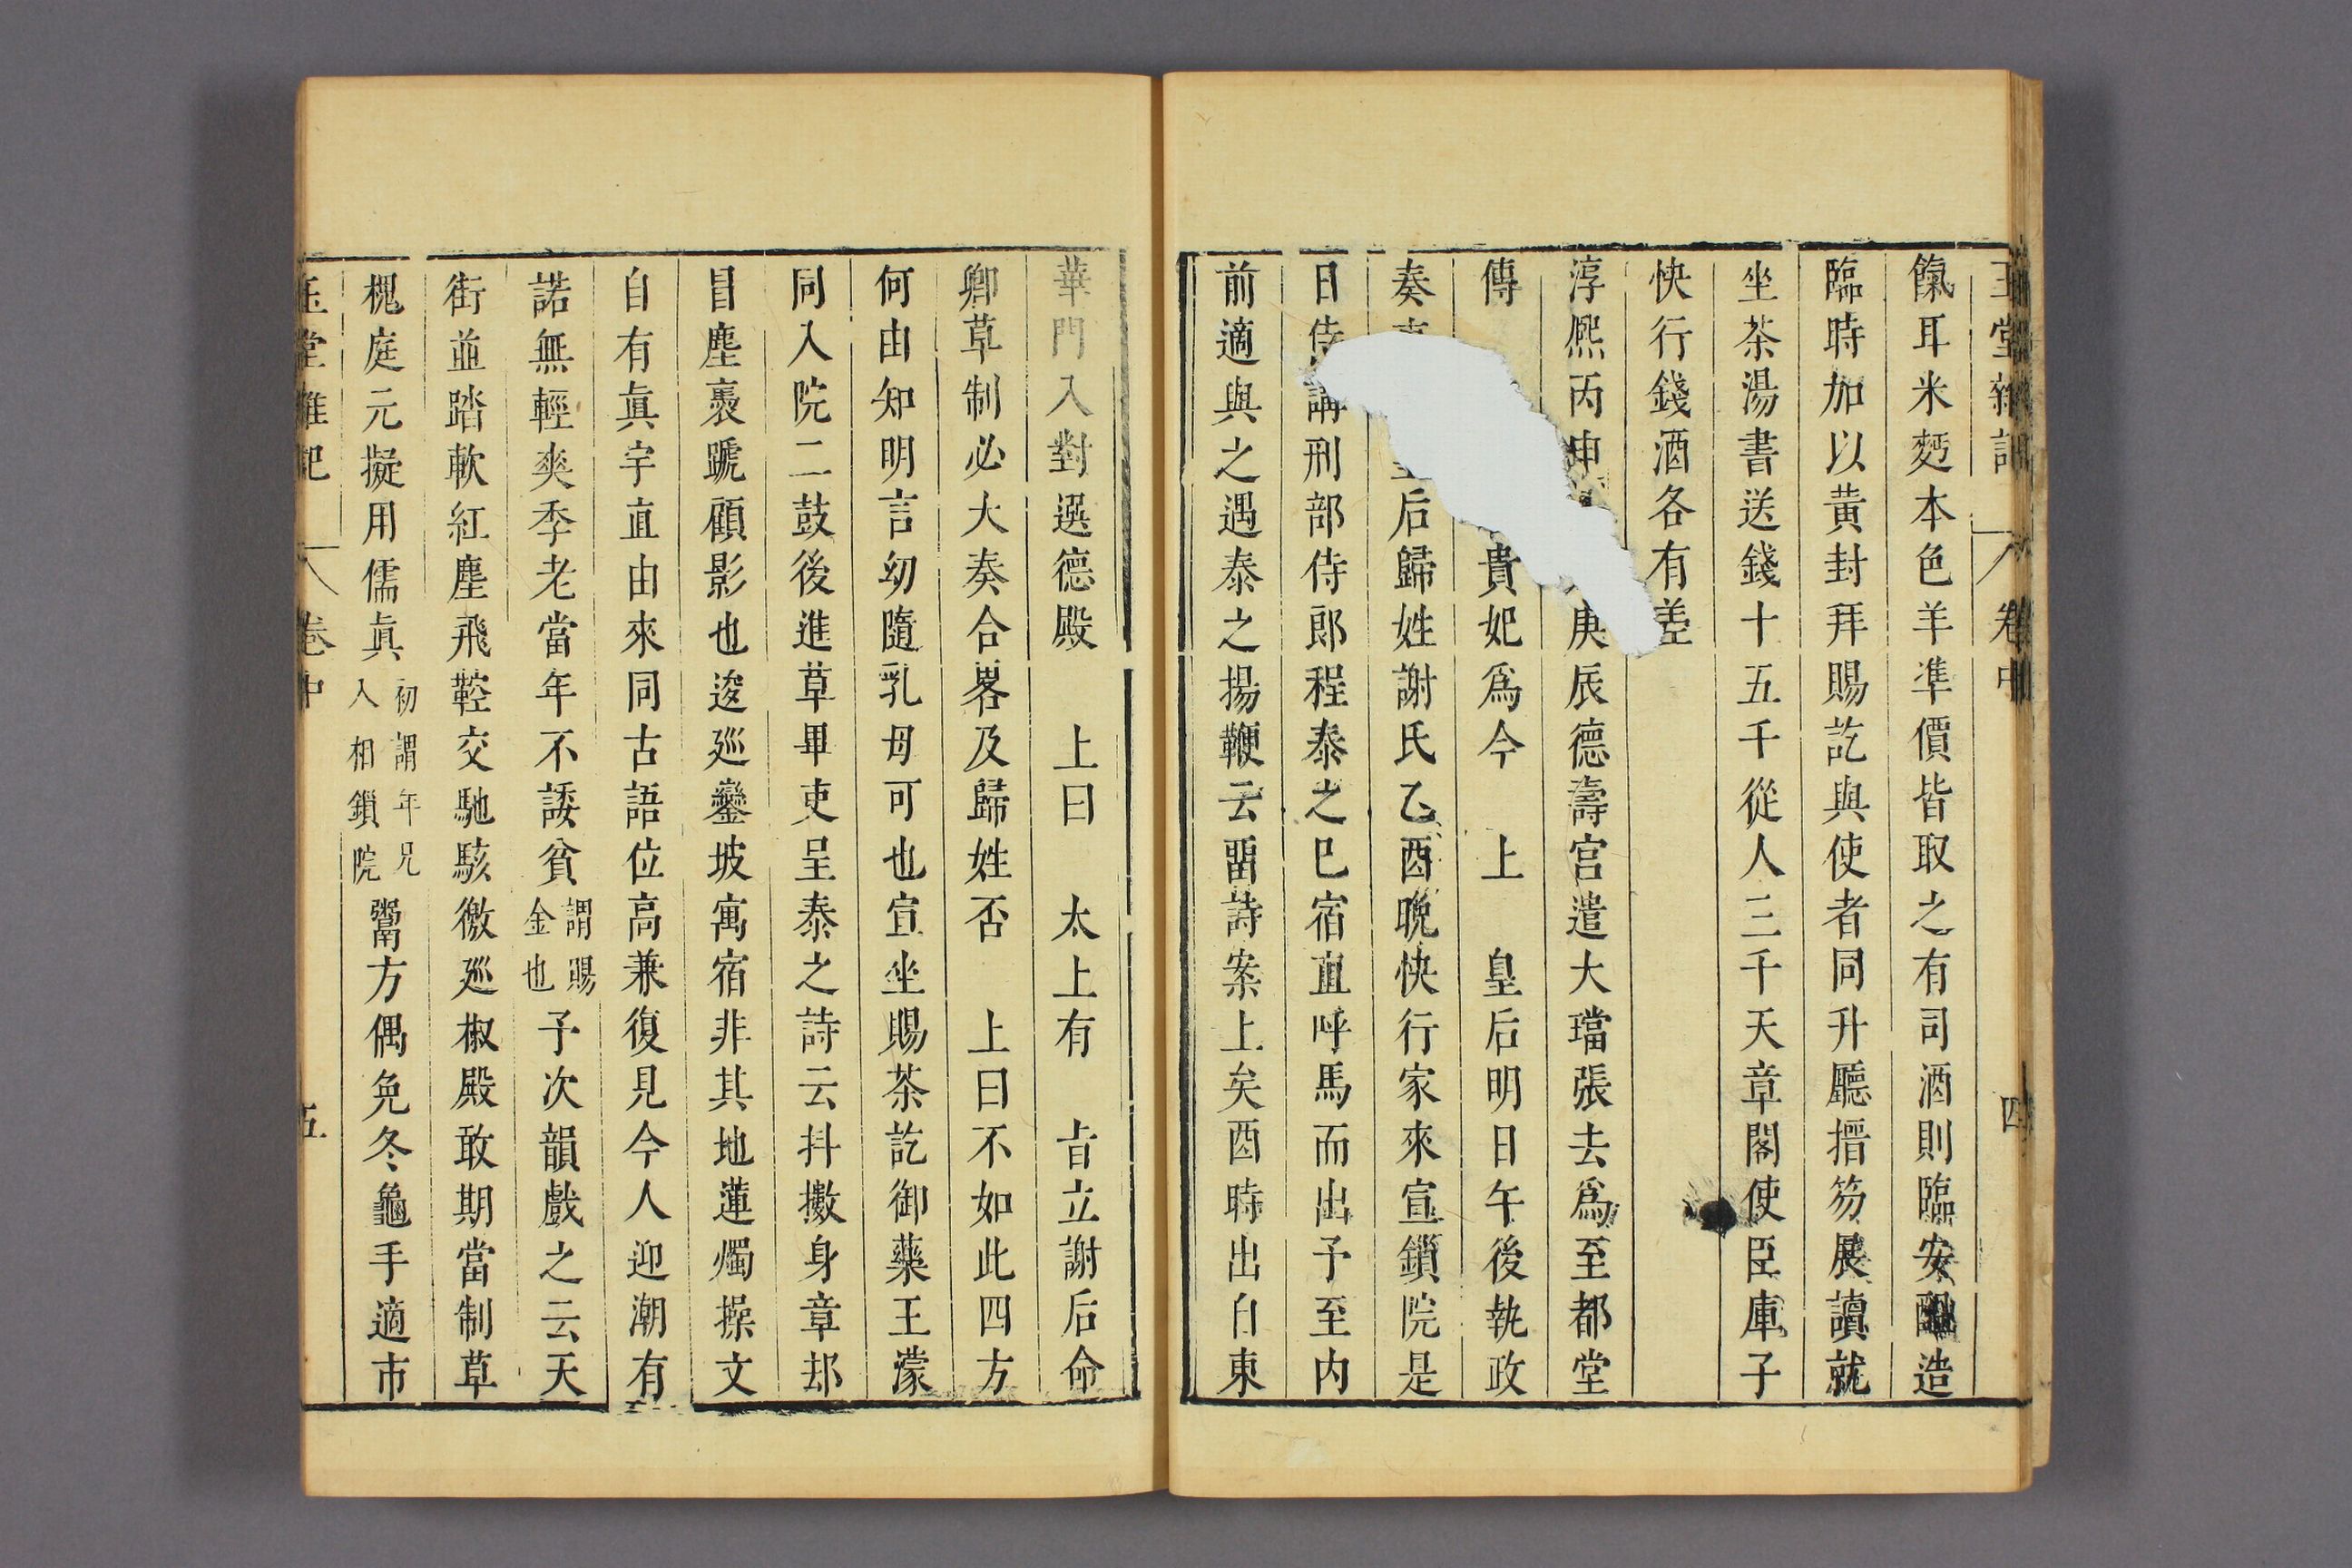 玉堂雜記 卷中 四
餼耳米麪本色羊準價皆取之有司酒則臨安醞造
臨時加以黃封拜賜訖與使者同升廳搢笏展讀就
坐茶湯書送錢十五千從人三千天章閣使臣庫子
快行錢酒各有差
淳熈丙申 庚辰德壽宮遣大璫張去爲至都堂
傳 貴妃爲今 上 皇后明日午後執政
奏 后歸姓謝氏乙酉晚快行家來宣鎖院是
日侍講刑部侍郎程泰之已宿直呼馬而出予至内
前適與之遇泰之揚鞭云畱詩案上矣酉時出自東
華門入對選德殿 上曰 太上有 㫖立謝后命
卿草制必大奏合畧及歸姓否 上曰不如此四方
何由知明言幼隨乳母可也宣坐賜茶訖御藥王濛
同入院二鼓後進草畢吏呈泰之詩云抖擻身章却
冒塵裹蹏顧影也逡廵鑾坡寓宿非其地蓮燭操文
自有眞宇直由來同古語位高兼復見今人迎潮有
諾無輕爽季老當年不諉貧謂賜金也予次韻戲之云天
街並踏軟紅塵飛鞚交馳駭徼廵椒殿敢期當制草
槐庭元擬用儒眞初謂年兄入相鎖院鬻方偶免冬龜手適市
玉堂雜記 卷中 五